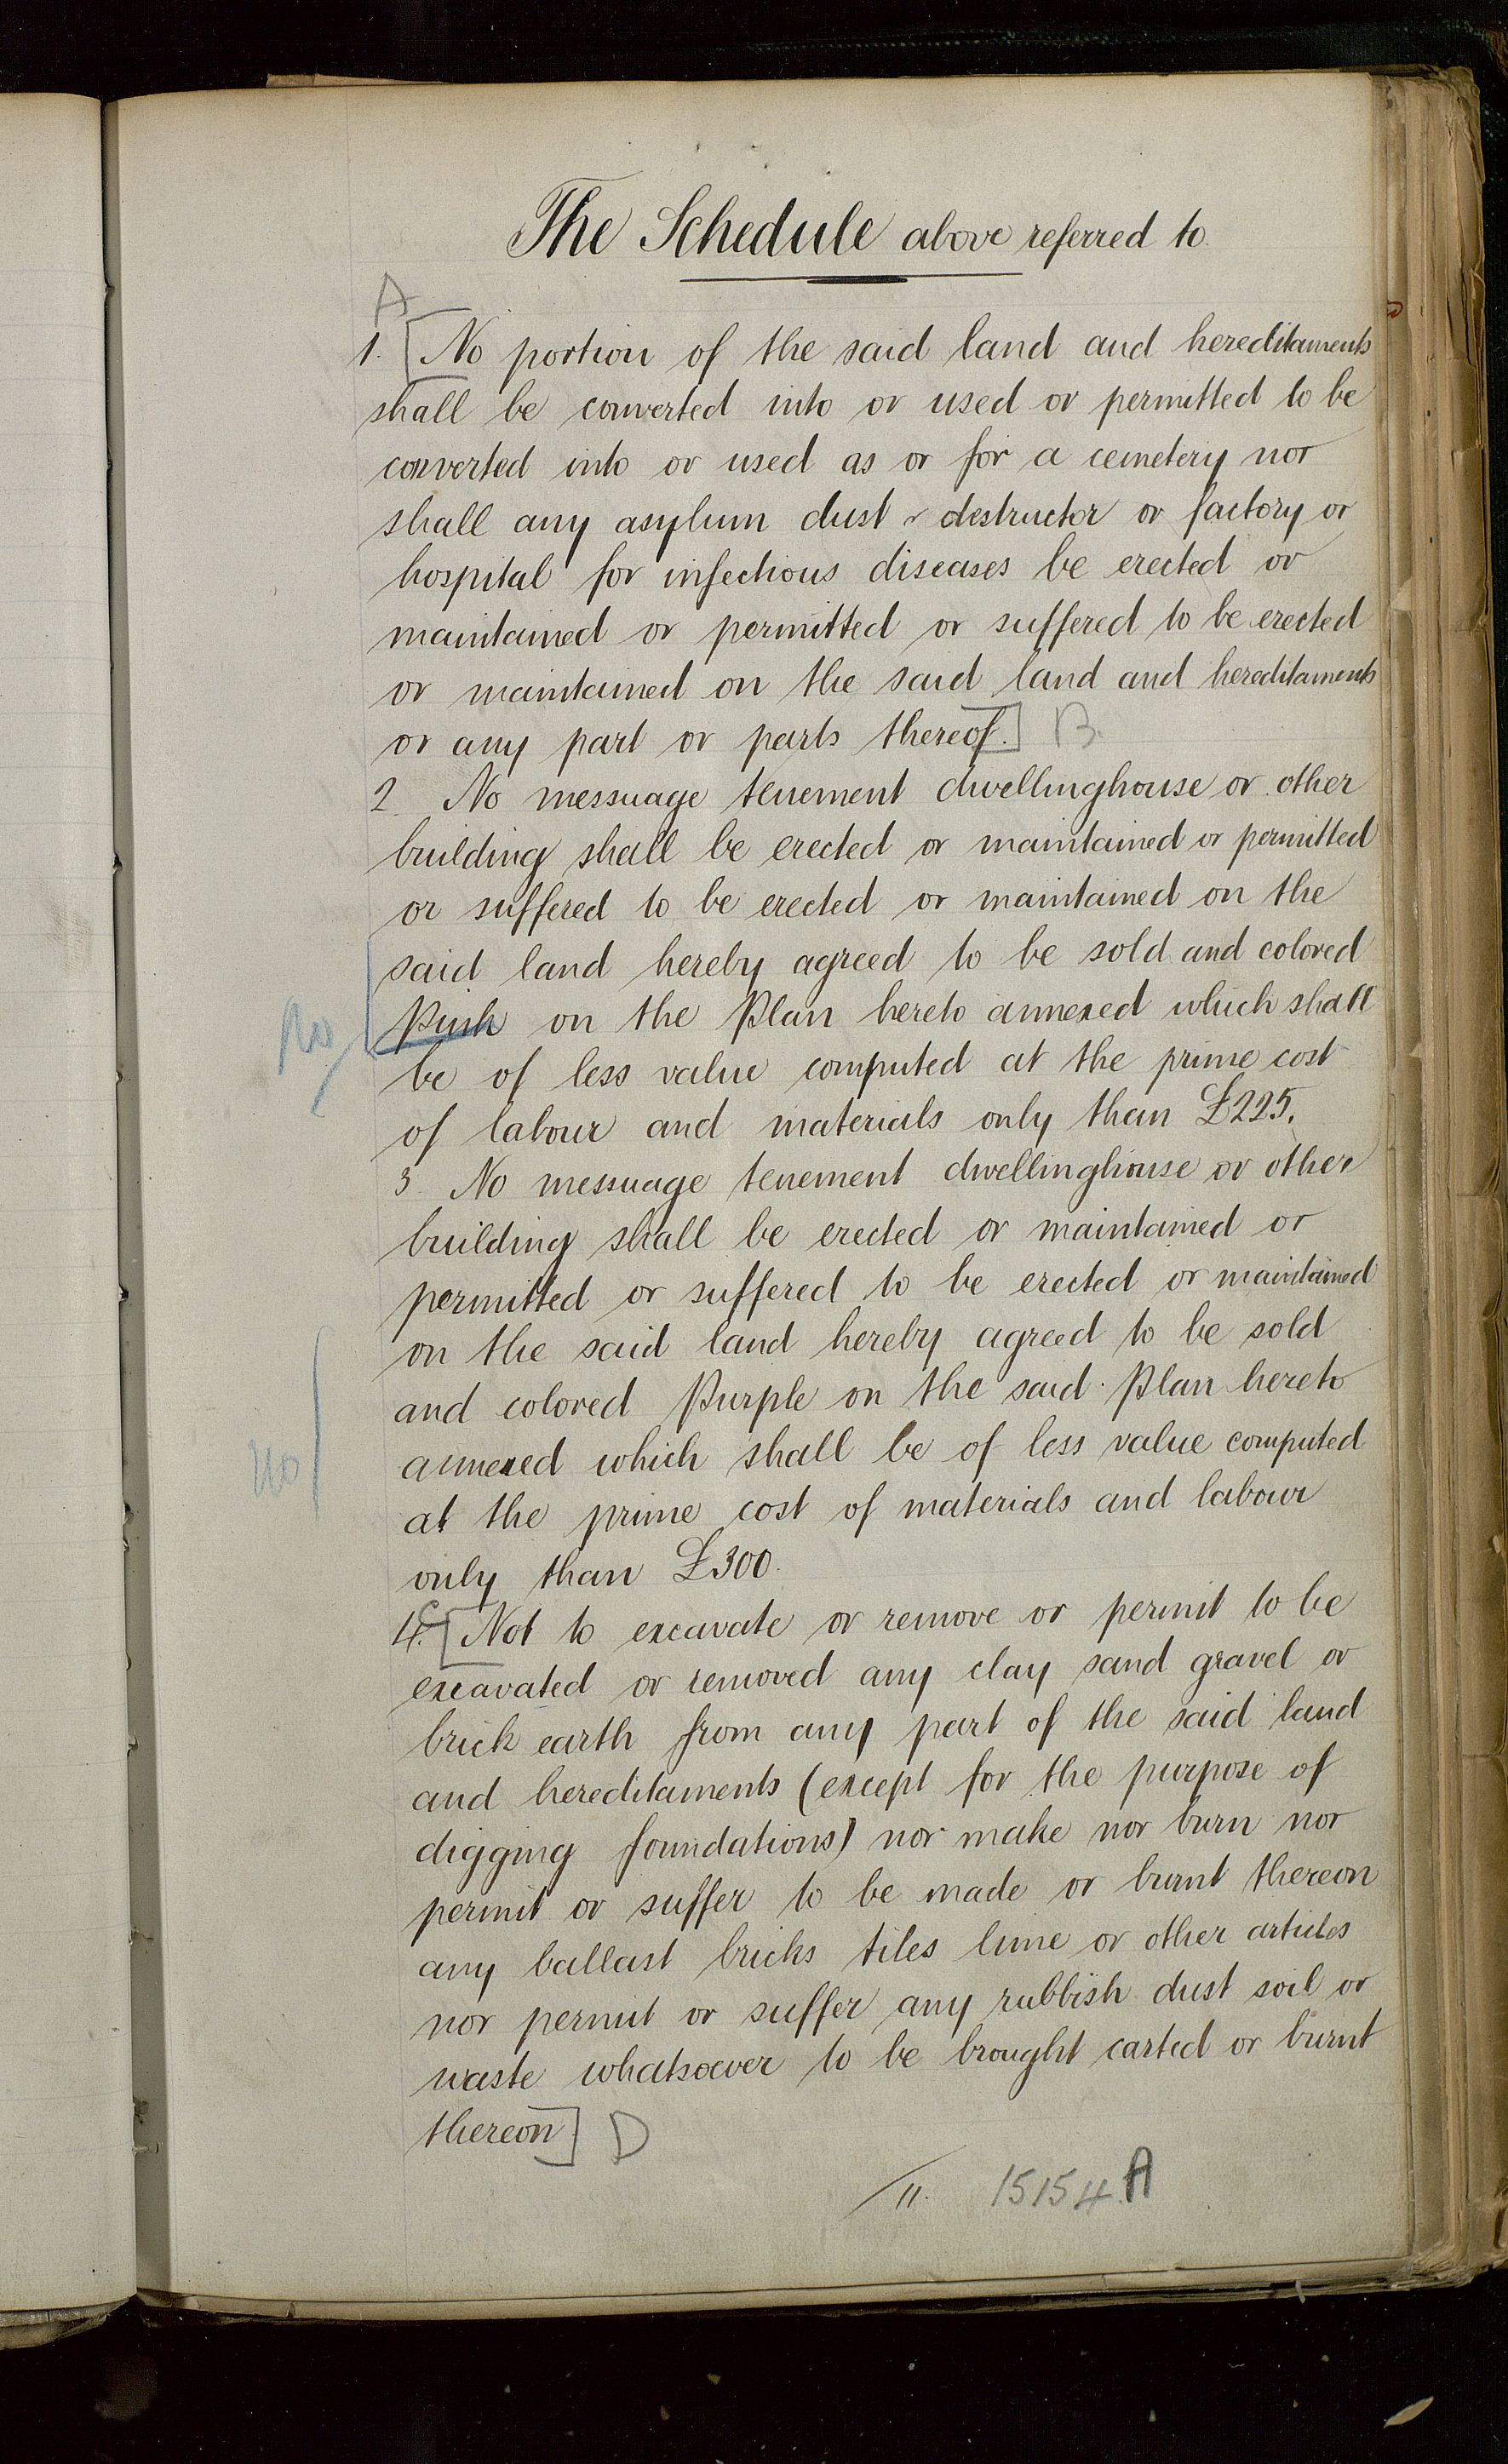 The Schedule above referred to.
A
1. [No portion of the said land and hereditaments
shall be converted into or used or permitted to be
converted into or used as or for a cemetery nor
shall any asylum dust - destructor or factory or
hospital for infectious diseases be erected or
maintained or permitted or suffered to be erected
or maintained on the said land and hereditaments
or any part or parts thereof.] B.
2. No messuage tenement dwellinghouse or other
building shall be erected or maintained or permitted
or suffered to be erected or maintained on the
said land hereby agreed to be sold and colored
No Pink on the Plan hereto annexed which shall
be of less value computed at the prime cost
of labour and materials only than £225.
3. No messuage tenement dwellinghouse or other
building shall be erected or maintained or
permitted or suffered to be erected or maintained
on the said land hereby agreed to be sold
and colored Purple on the said Plan hereto
No annexed which shall be of less value computed
at the prime cost of materials and labour
only than £300.
C
4. [Not to excavate or remove or permit to be
excavated or removed any clay sand gravel or
brick earth from any part of the said land
and hereditaments (except for the purpose of
digging foundations) nor make nor burn nor
permit or suffer to be made or burnt thereon
any ballast bricks tiles lime or other articles
nor permit or suffer any rubbish dust soil or
waste whatsoever to be brought carted or burnt
thereon] D
11. 15154.A